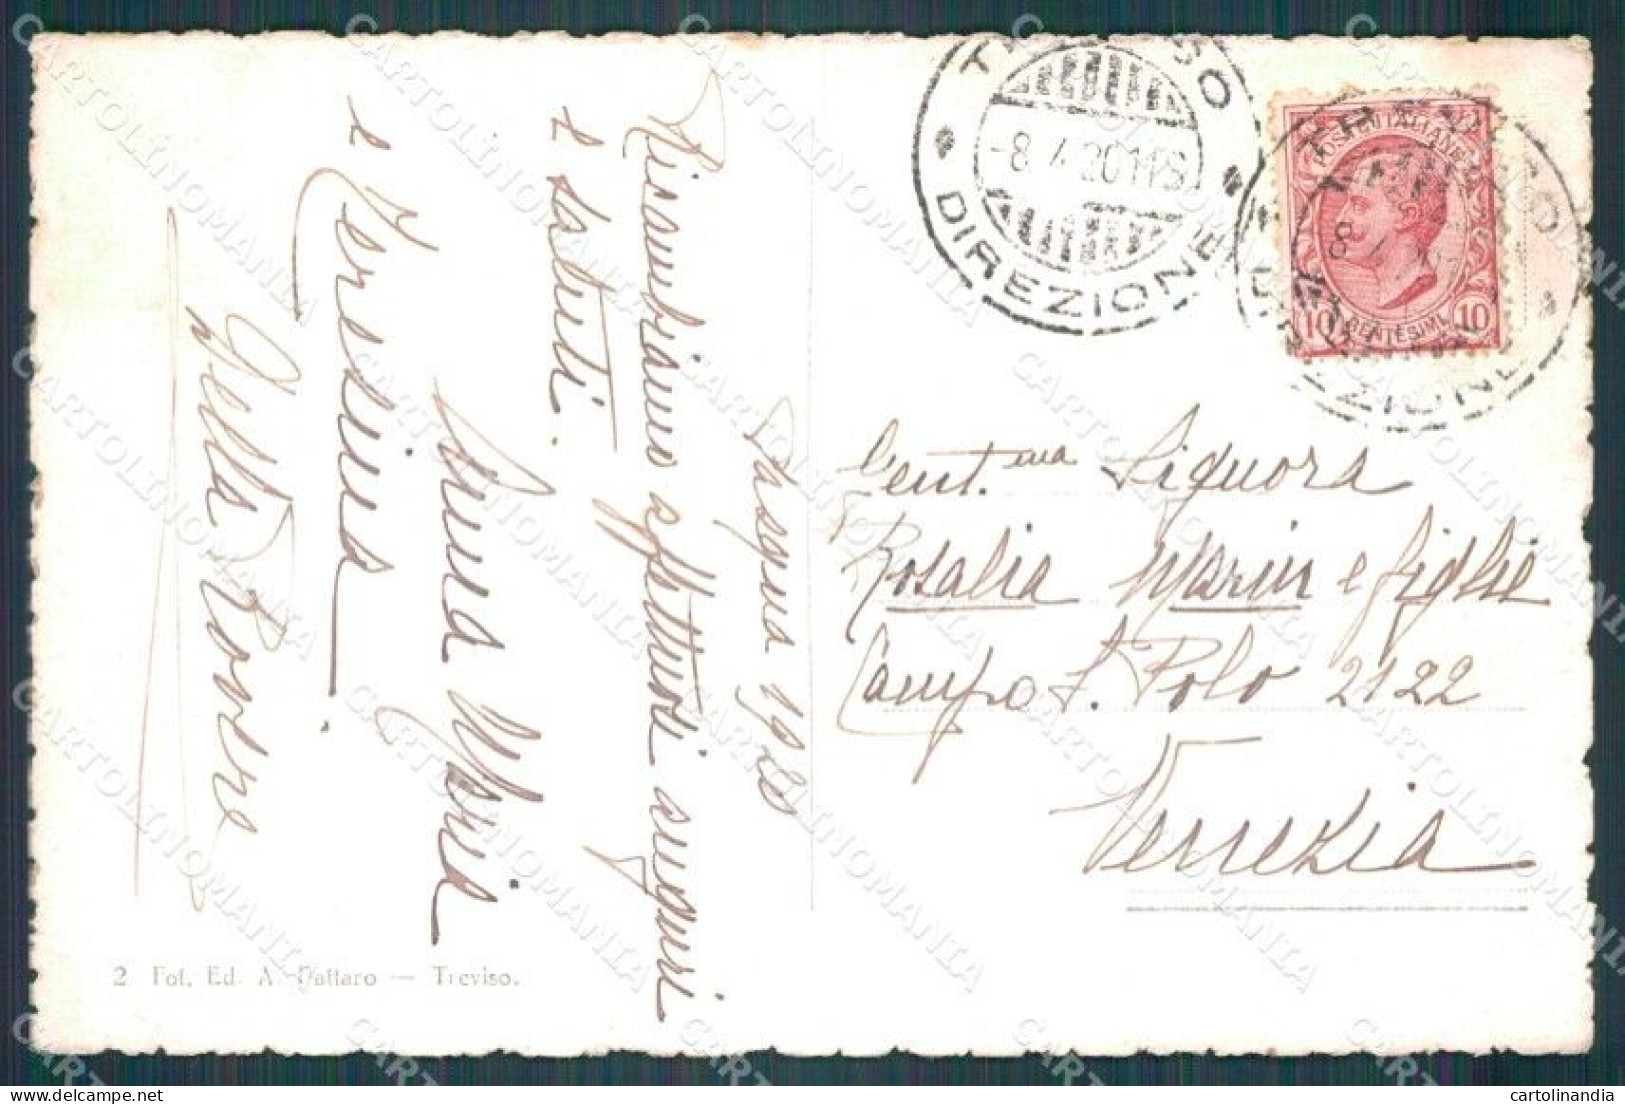 Pasqua 1920
Ricambiamo affettuosi auguri
e saluti.
Anna Maria
e Teresina
Della Rovere
Gent.ma Signora
Rosalia Marin e figlie
Campo S. Polo 2122
Venezia
2 Fot. Ed. A. Pattaro — Treviso.
TREVISO
-8.4.20 11
DIREZIONE
TREVISO
8
DIREZIONE
POSTE ITALIANE
10 CENTESIMI 10
CARTOLINOMANIA
cartolinandia